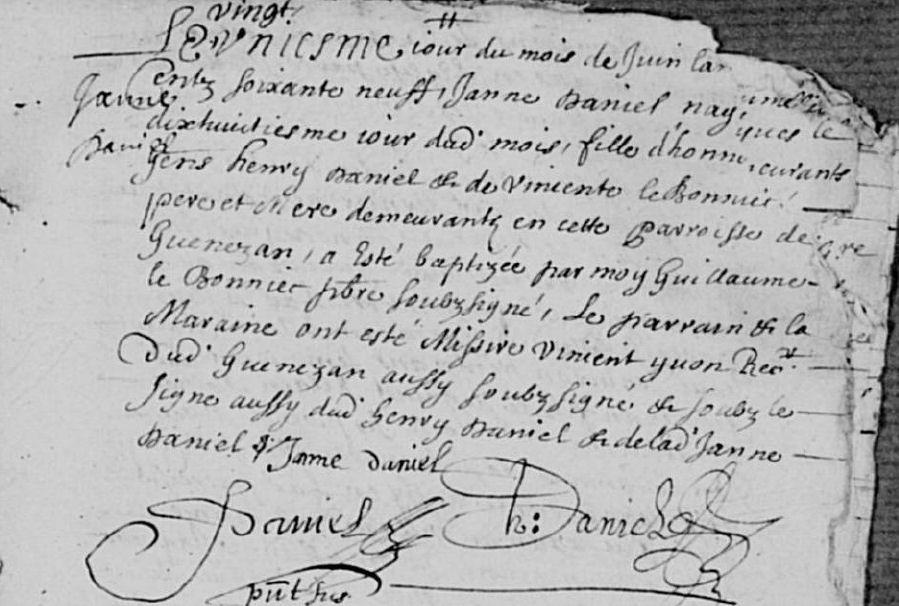 vingt
Le vniesme iour du mois de Juin lan
Janne
Daniel
centz soixante neuff, Janne Daniel nay
dixhuictiesme iour dud mois, fille dhonn
gens henry Daniel & de Viniente le Bonniec
pere et Mere demeurantz en cette parroisse de
Guenezan, a Esté baptizée par moy Guillaume
le Bonniec pbre soubzsigné, Le parrain & la
Maraine ont esté Missire Vinient yuon Recr
Dud Guenezan aussy soubzsigne & soubz le
signe aussy dud henry Daniel & delad Janne
Daniel & Janne Daniel
Daniel h: Daniel